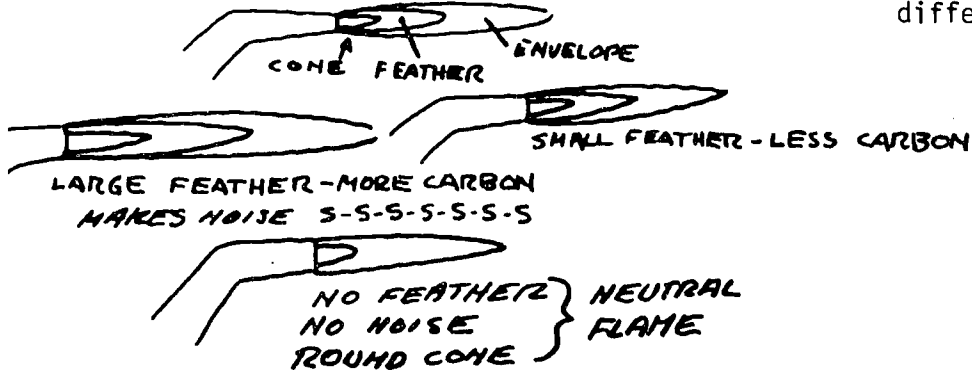 diffe
CONE FEATHER ENVELOPE
SMALL FEATHER - LESS CARBON
LARGE FEATHER - MORE CARBON
MAKES NOISE S-S-S-S-S-S-S
NO FEATHER
NO NOISE
ROUND CONE
NEUTRAL
FLAME